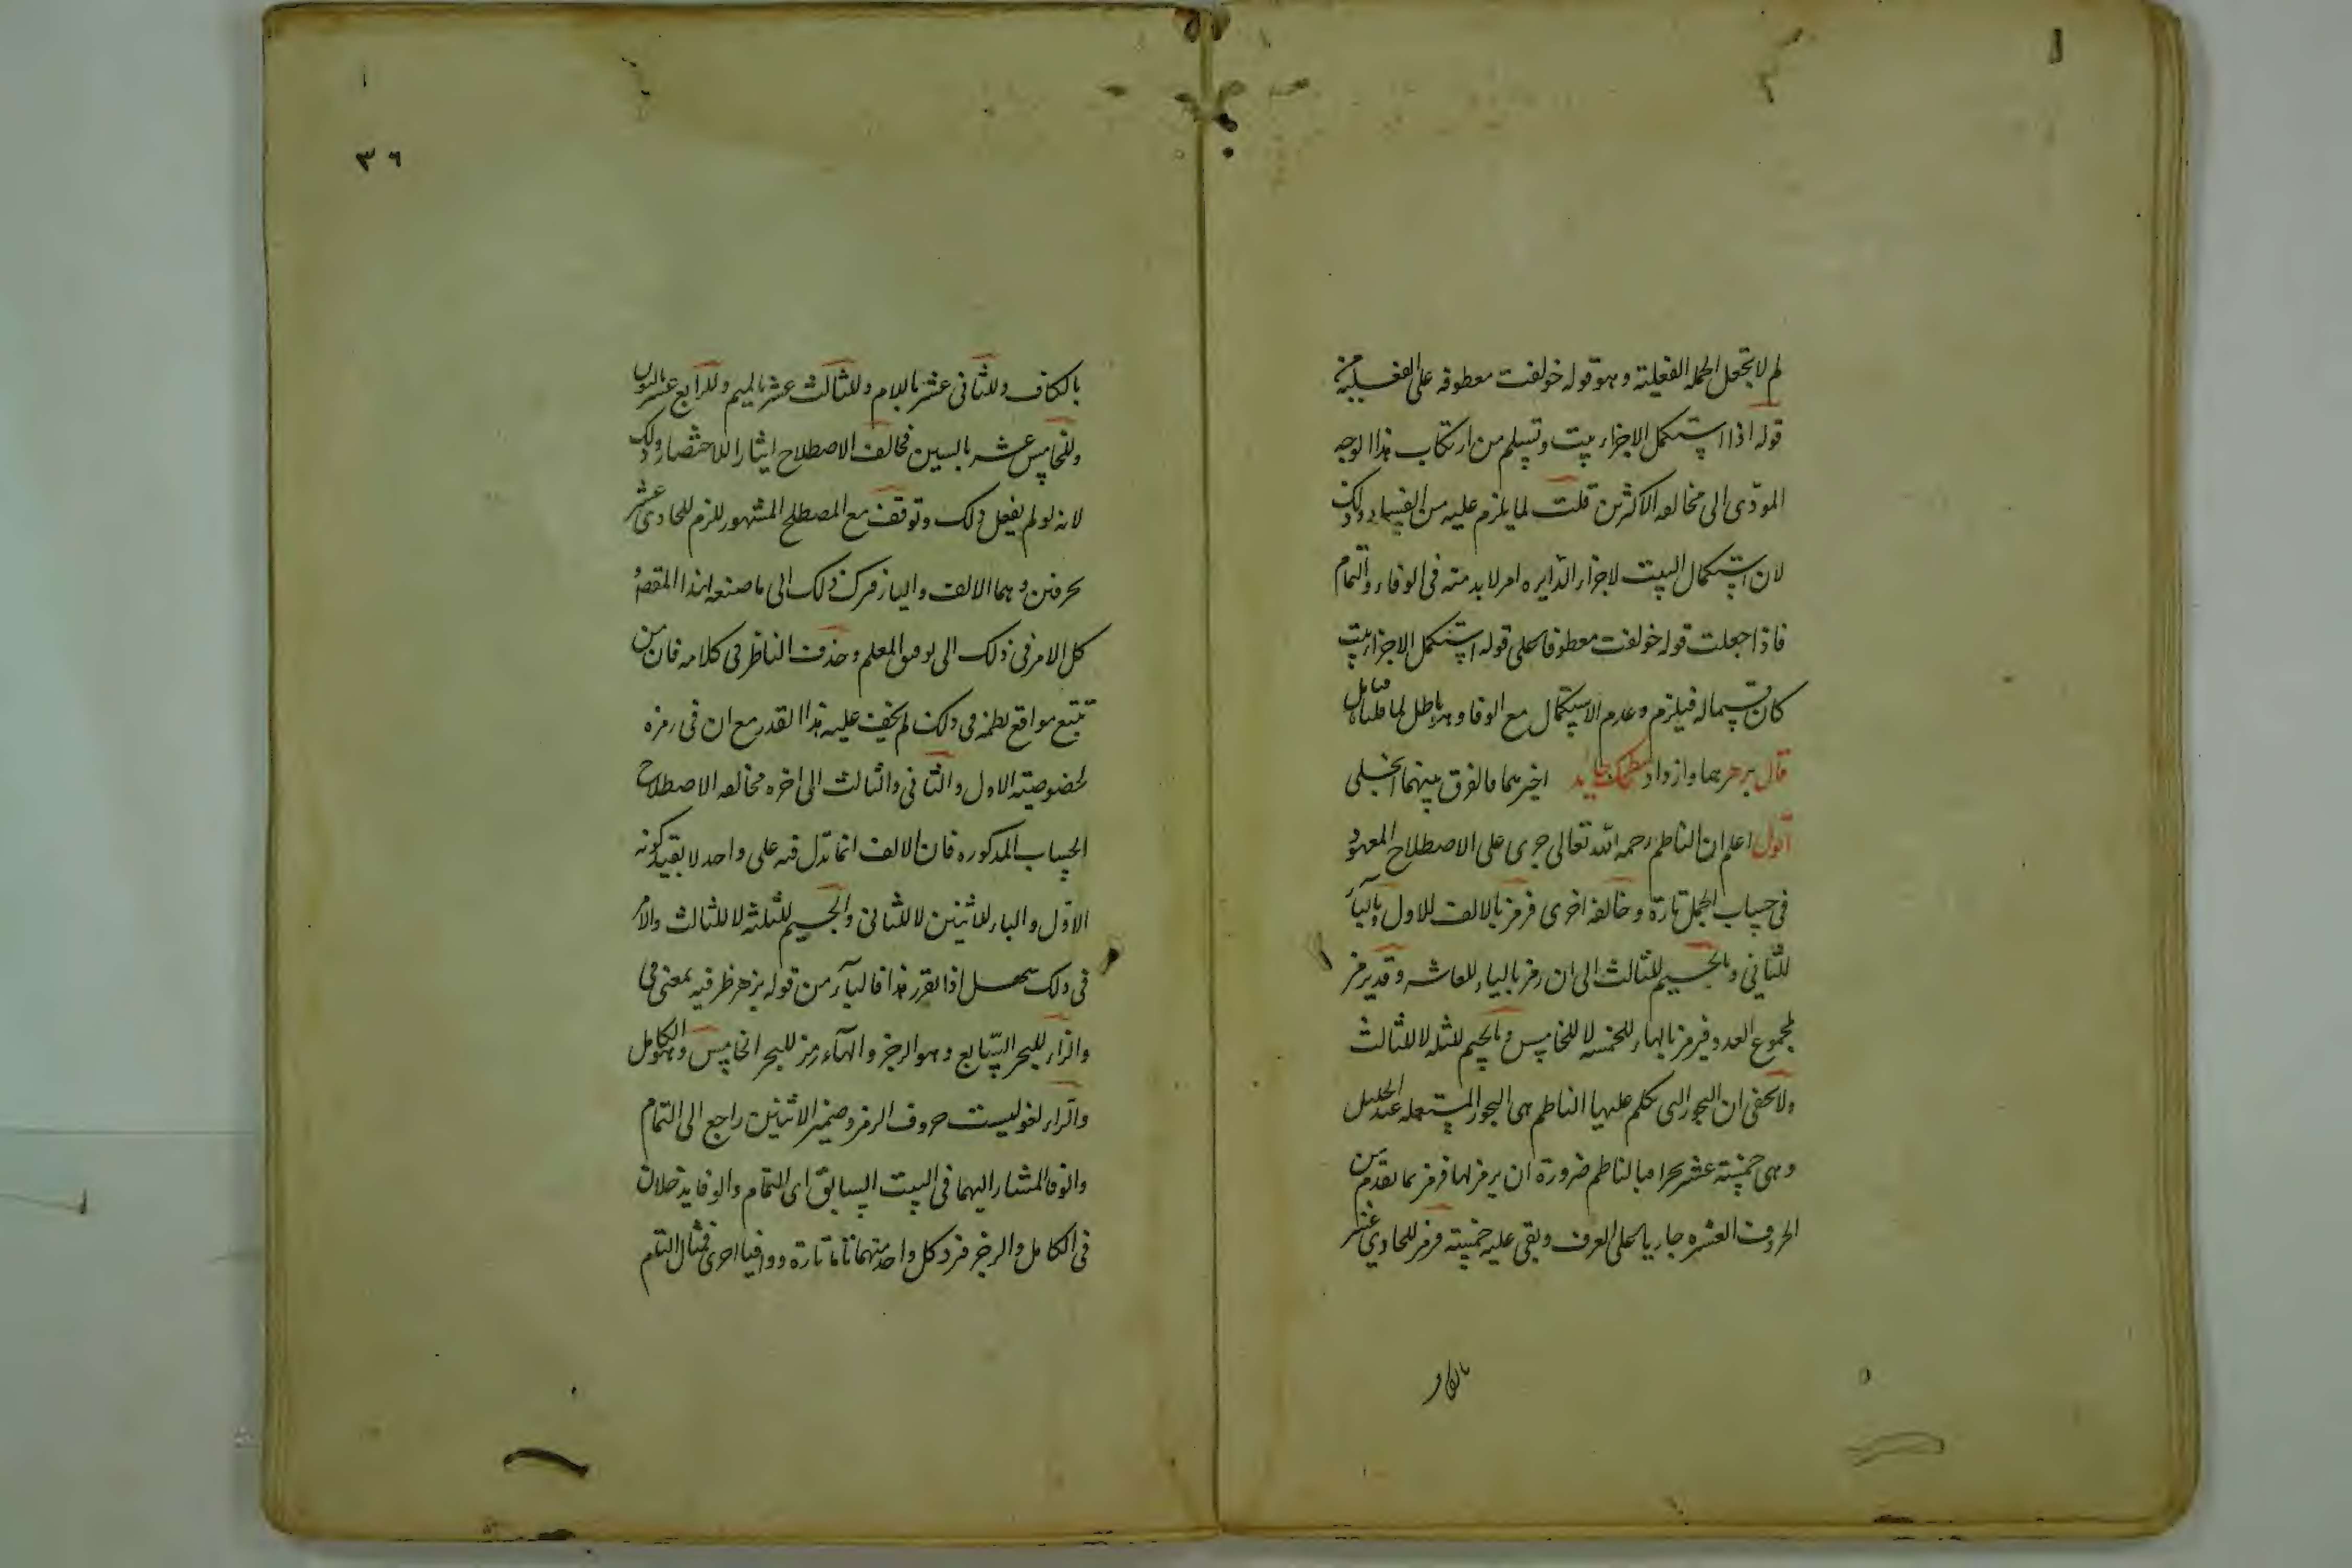 لم لا تجعل الجملة الفعلية وهو قوله خولفت معطوفة على الفعلية من
قوله اذا استكمل الاجزاء بيت وتسلم من ارتكاب هذا الوجه
المودّى الى مخالفه الاكثرين قلت لما يلزم عليه من الفساد وذلك
لان استكمال البيت لاجزاء الدايره امر لا بد منه فى الوفاء والتمام
فاذا جعلت قوله خولفت معطوفا على قوله استكمل الاجزاء بيت
كان قسيما له فيلزم وعدم الاستكمال مع الوفا وهو باطل لما قلناه قال
قال بزهر هما وازداد سطحك جايد اخيرهما فالفرق بينهما انجلى
اقول اعلم ان الناظم رحمه الله تعالى جرى على الاصطلاح المعهود
فى حساب الجمل تارة وخالفه اخرى فرمز بالالف للاول وبالباء
للثانى وبالجيم للثالث الى ان رمز بالياء للعاشر وقد يرمز
لمجموع العدد فيرمز بالهاء للخمسه لا للخامس وبالجيم لثلثه لا للثالث
ولا يخفى ان البحور التى تكلم عليها الناظم هى البحور المستعمله عند الخليل
وهى خمسة عشر بحرا فبالناظم ضرورة ان يرمز لها فرمز بما تقدم من
الحروف العشره جاريا على العرف وبقى عليه خمسة فرمز للحادى عشر
بالكاف
٣٦
بالكاف وللثانى عشر باللام وللثالث عشر بالميم وللرابع عشر بالنون
وللخامس عشر بالسين فخالف الاصطلاح ايثارا للاختصار وذلك
لانه لو لم يفعل ذلك وتوقف مع المصطلح المشهور للزم للحادى عشر
بحرفين وهما الالف والياء فترك ذلك الى ما صنعه لهذا المقصد
وكل الامر فى ذلك الى توفيق المعلم وحذق الناظر فى كلامه فان من
تتبع مواقع نظمه فى ذلك لم يخف عليه هذا القدر مع ان فى رمزه
لخصوصية الاول والثانى والثالث الى اخره مخالفه الاصطلاح
الحساب المذكوره فان الالف انما تدل فيه على واحد لا بقيد كونه
الاول والباء للاثنين لا للثانى والجيم للثلثة لا للثالث والامر
فى ذلك سهل اذا تقرر هذا فالباء من قوله بزهر ظرفيه بمعنى فى
والزاء للبحر السابع وهو الرجز والهاء رمز للبحر الخامس وهو الكامل
والراء لغو ليست حروف الرمز وضمير الاثنين راجع الى التمام
والوفا المشار اليهما فى البيت السابق اى التمام والوفا يدخلان
فى الكامل والرجز فيرد كل واحد منهما تاما تارة ووافيا اخرى فمثال التام